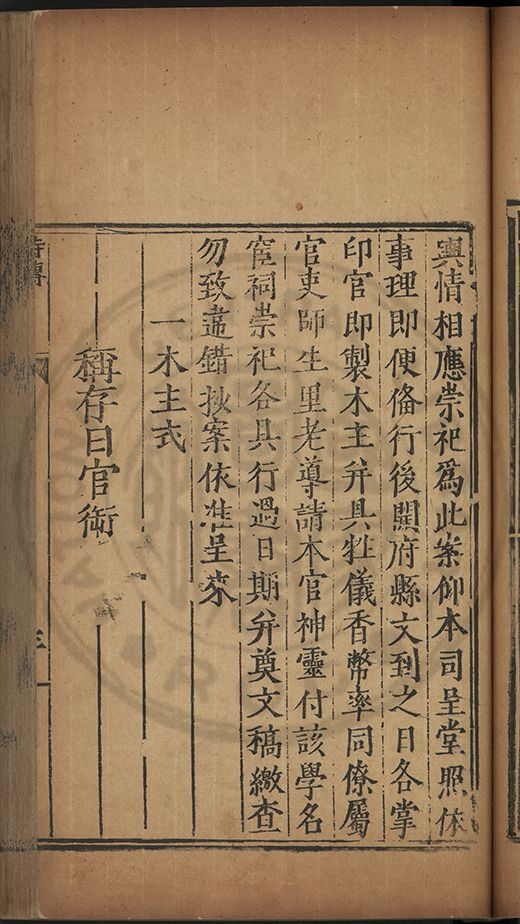 輿情相應崇祀爲此案仰本司呈堂照依
事理即便俻行後開府縣文到之日各掌
印官即製木主并具牲儀香幣率同僚屬
官吏師生里老導請本官神靈付該學名
宦祠崇祀各具行過日期并奠文稿繳查
勿致違錯抄案依准呈來
一木主式
稱存日官銜